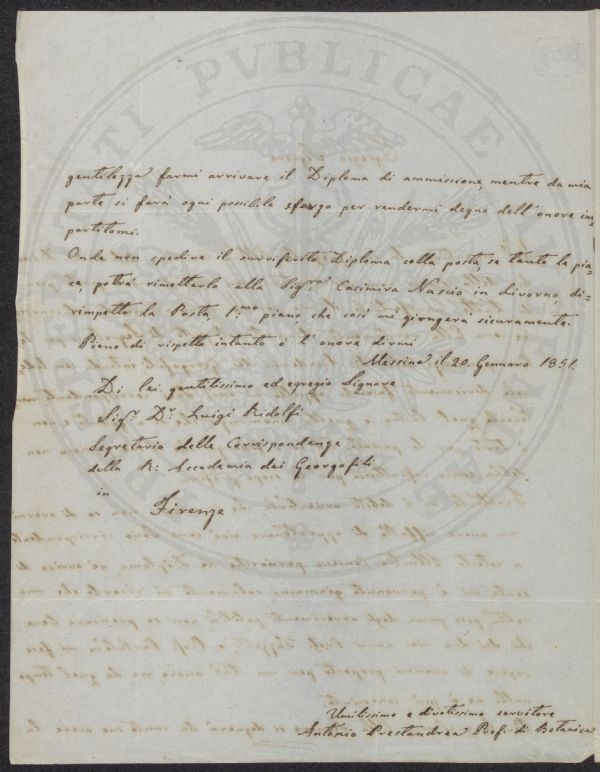 gentilezza farmi arrivare il Diploma di ammissione, mentre da mia
parte si farà ogni possibile sforzo per rendermi degno dell'onore im=
partitomi.
Onde non spedire il surriferito Diploma colla posta, se tanto le pia=
ce, potrà rimetterlo alla Sigra Casimira Nascio in Livorno, di=
rimpetto la Posta, 1.mo piano, che così mi giungerà sicuramente.
Pieno di rispetto intanto ò l'onore dirmi
Messina il 20. Gennaro 1851.
Di lei gentilissimo ed egregio Signore
Sigr. Dr. Luigi Ridolfi
Segretario delle Corrispondenze
della R: Accademia dei Georgofili
in
Firenze
Umilissimo e divotissimo servitore
Antonio Prestandrea Prof. di Botanica